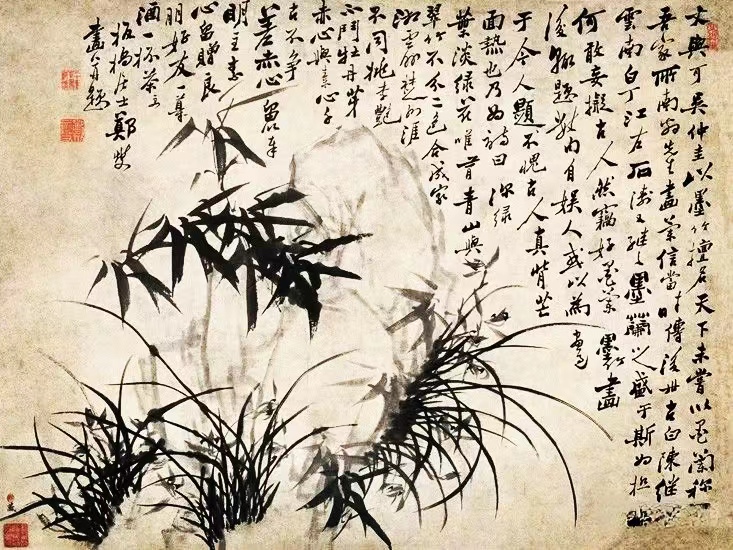 文與可吳仲圭以墨竹擅名天下未嘗以墨蘭稱
吾家所南翁先生畫蘭信當時傳後世古白陳繼
雲南白丁江右石濤又繼之墨蘭之盛于斯為極
何敢妄擬古人然竊好蘭墨竹畫
後輒題數句自娛人或以為
于今人題不愧古人真背芒
面熱也乃為詩曰深綠
葉淡綠花唯有青山與
翠竹不分二色合成家
湘雲
不同桃李艷
不鬥牡丹芽
赤心與素心子
古不爭差
明主
心留贈良
朋好友一尊
酒一杯茶
板橋居士鄭燮
畫并題